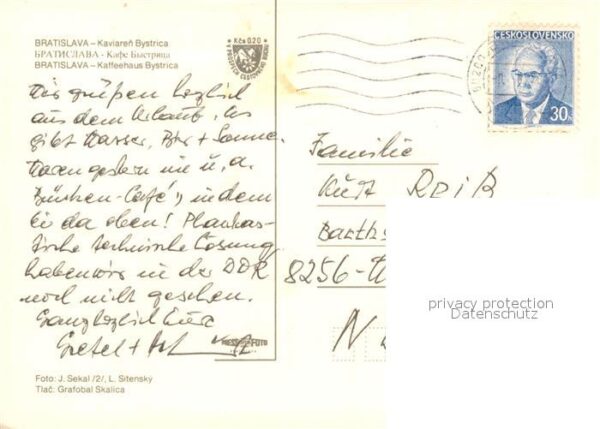 BRATISLAVA – Kaviareň Bystrica
БРАТИСЛАВА - Кафе Быстрица
BRATISLAVA – Kaffeehaus Bystrica
Kčs 0.20
ČESKOSLOVENSKO
30
Wir grüßen herzlich
aus dem Urlaub. Es
gibt Wasser, Bier + Sonne.
Waren gestern in u. a.
-Café, in dem
da oben!
technische Lösung
haben wir in der DDR
noch nicht gesehen.
Ganz herzlich Eure
Gretel +
PRESSFOTO
Familie
Kurt
Barths
8256-W
Foto: J. Sekal /2/, L. Sitenský
Tlač: Grafobal Skalica
privacy protection
Datenschutz